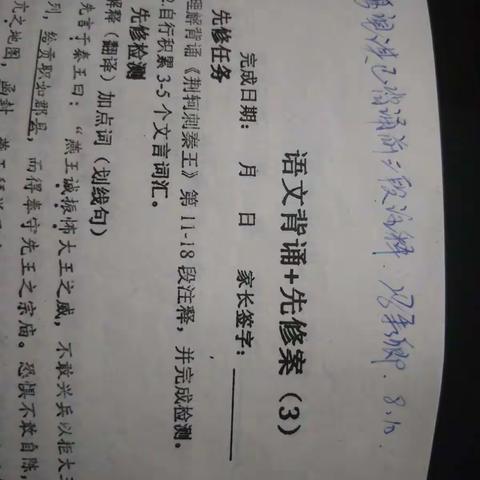 已背诵前三段注释. 8.10.
语文背诵+先修案（3）
完成日期： 月 日 家长签字：
先修任务
理解背诵《荆轲刺秦王》第 11-18 段注释，并完成检测。
2.自行积累 3-5 个文言词汇。
先修检测
解释（翻译）加点词（划线句）
先言于秦王曰：“燕王诚振怖大王之威，不敢兴兵以拒大
列，给贡职如郡县，而得奉守先王之宗庙。恐惧不敢自陈，
亢之地图，函封，燕王